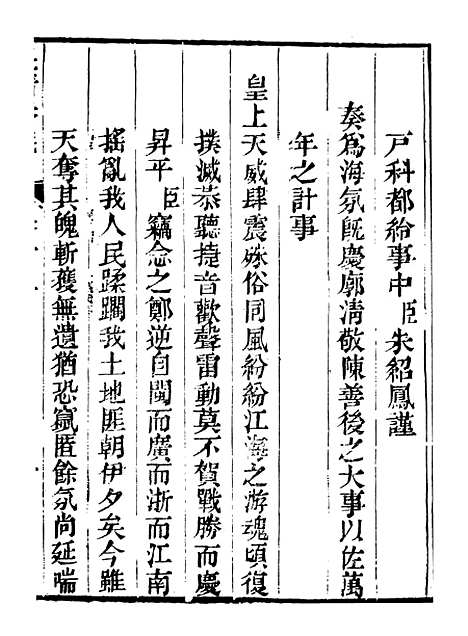 戸科都給事中臣朱紹鳳謹
奏爲海氛旣慶廓清敬陳善後之大事以佐萬
年之計事
皇上天威肆震殊俗同風紛紛江海之游魂頃復
撲滅恭聽捷音歡聲雷動莫不賀戰勝而慶
昇平臣竊念之鄭逆自閩而廣而浙而江南
搖亂我人民蹂躙我土地匪朝伊夕矣今雖
天奪其魄斬獲無遺猶恐竄匿餘氛尚延喘